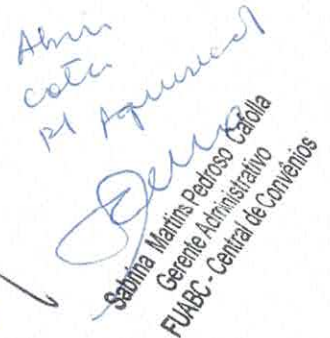 Abrir
cotar
p/
Sabrina Martins Pedroso Cafolla
Gerente Administrativo
FUABC - Central de Convênios